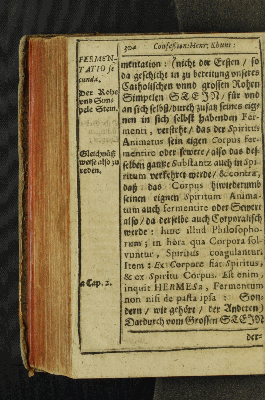 302 Confession: Henr: Khuni:
FERMEN-
TATIO se
cunda.
Der Rohe
und Sim-
pele Stein.
Gleichnüß
weise also zu
reden.
a Cap. 2.
mentation: (nicht der Ersten / so
da geschicht in zu bereitung unseres
Catholischen unnd grossen Rohen
Simpelen STEIN / für und
an sich selbst / durch zusatz seines eig-
nen in sich selbst habenden Fer-
menti, verstehe / das der Spiritus
Animatus sein eigen Corpus fer-
mentire oder sewere / also das des-
selben gantze Substantz auch in Spi-
ritum verkehrt werde / & contrà,
daß das Corpus hiwiederumb
seinen eignen Spiritum Anima-
tum auch fermentire oder Sewere
also / da derselbe auch Corporalisch
werde: hunc illud Philosopho-
rum; in hora qua Corpora sol-
vuntur, Spiritus coagulantur.
Item: Ex Corpore fiat Spiritus,
& ex Spiritu Corpus. Est enim,
inquit HERMES a, Fermentum
non nisi de pasta ipsa: Son-
dern / wie gehört / der Anderen)
Dardurch vom Grossen STEIN
der-